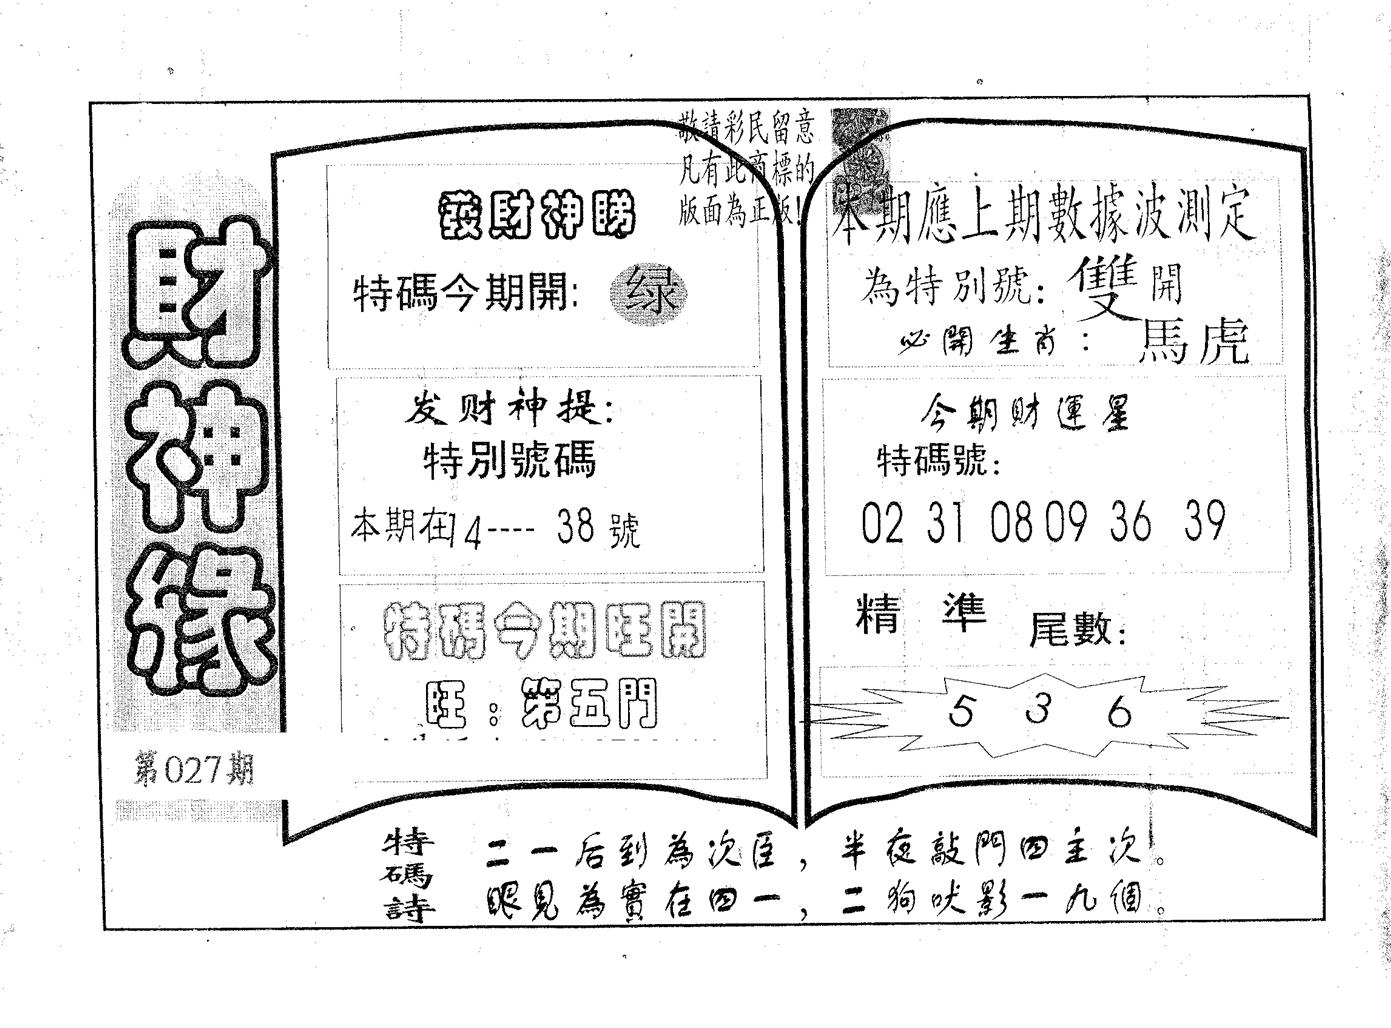 財神緣
第027期
敬請彩民留意
凡有此商標的
版面為正版!
發財神睇
特碼今期開: 绿
发财神提:
特別號碼
本期在14---- 38號
特碼今期旺開
旺:第五門
本期應上期數據波測定
為特別號: 雙開
必開生肖: 馬虎
今期財運星
特碼號:
02 31 08 09 36 39
精準尾數:
5 3 6
特碼詩
二一后到為次臣，半夜敲門四主次。
眼見為實在四一，二狗吠影一九個。